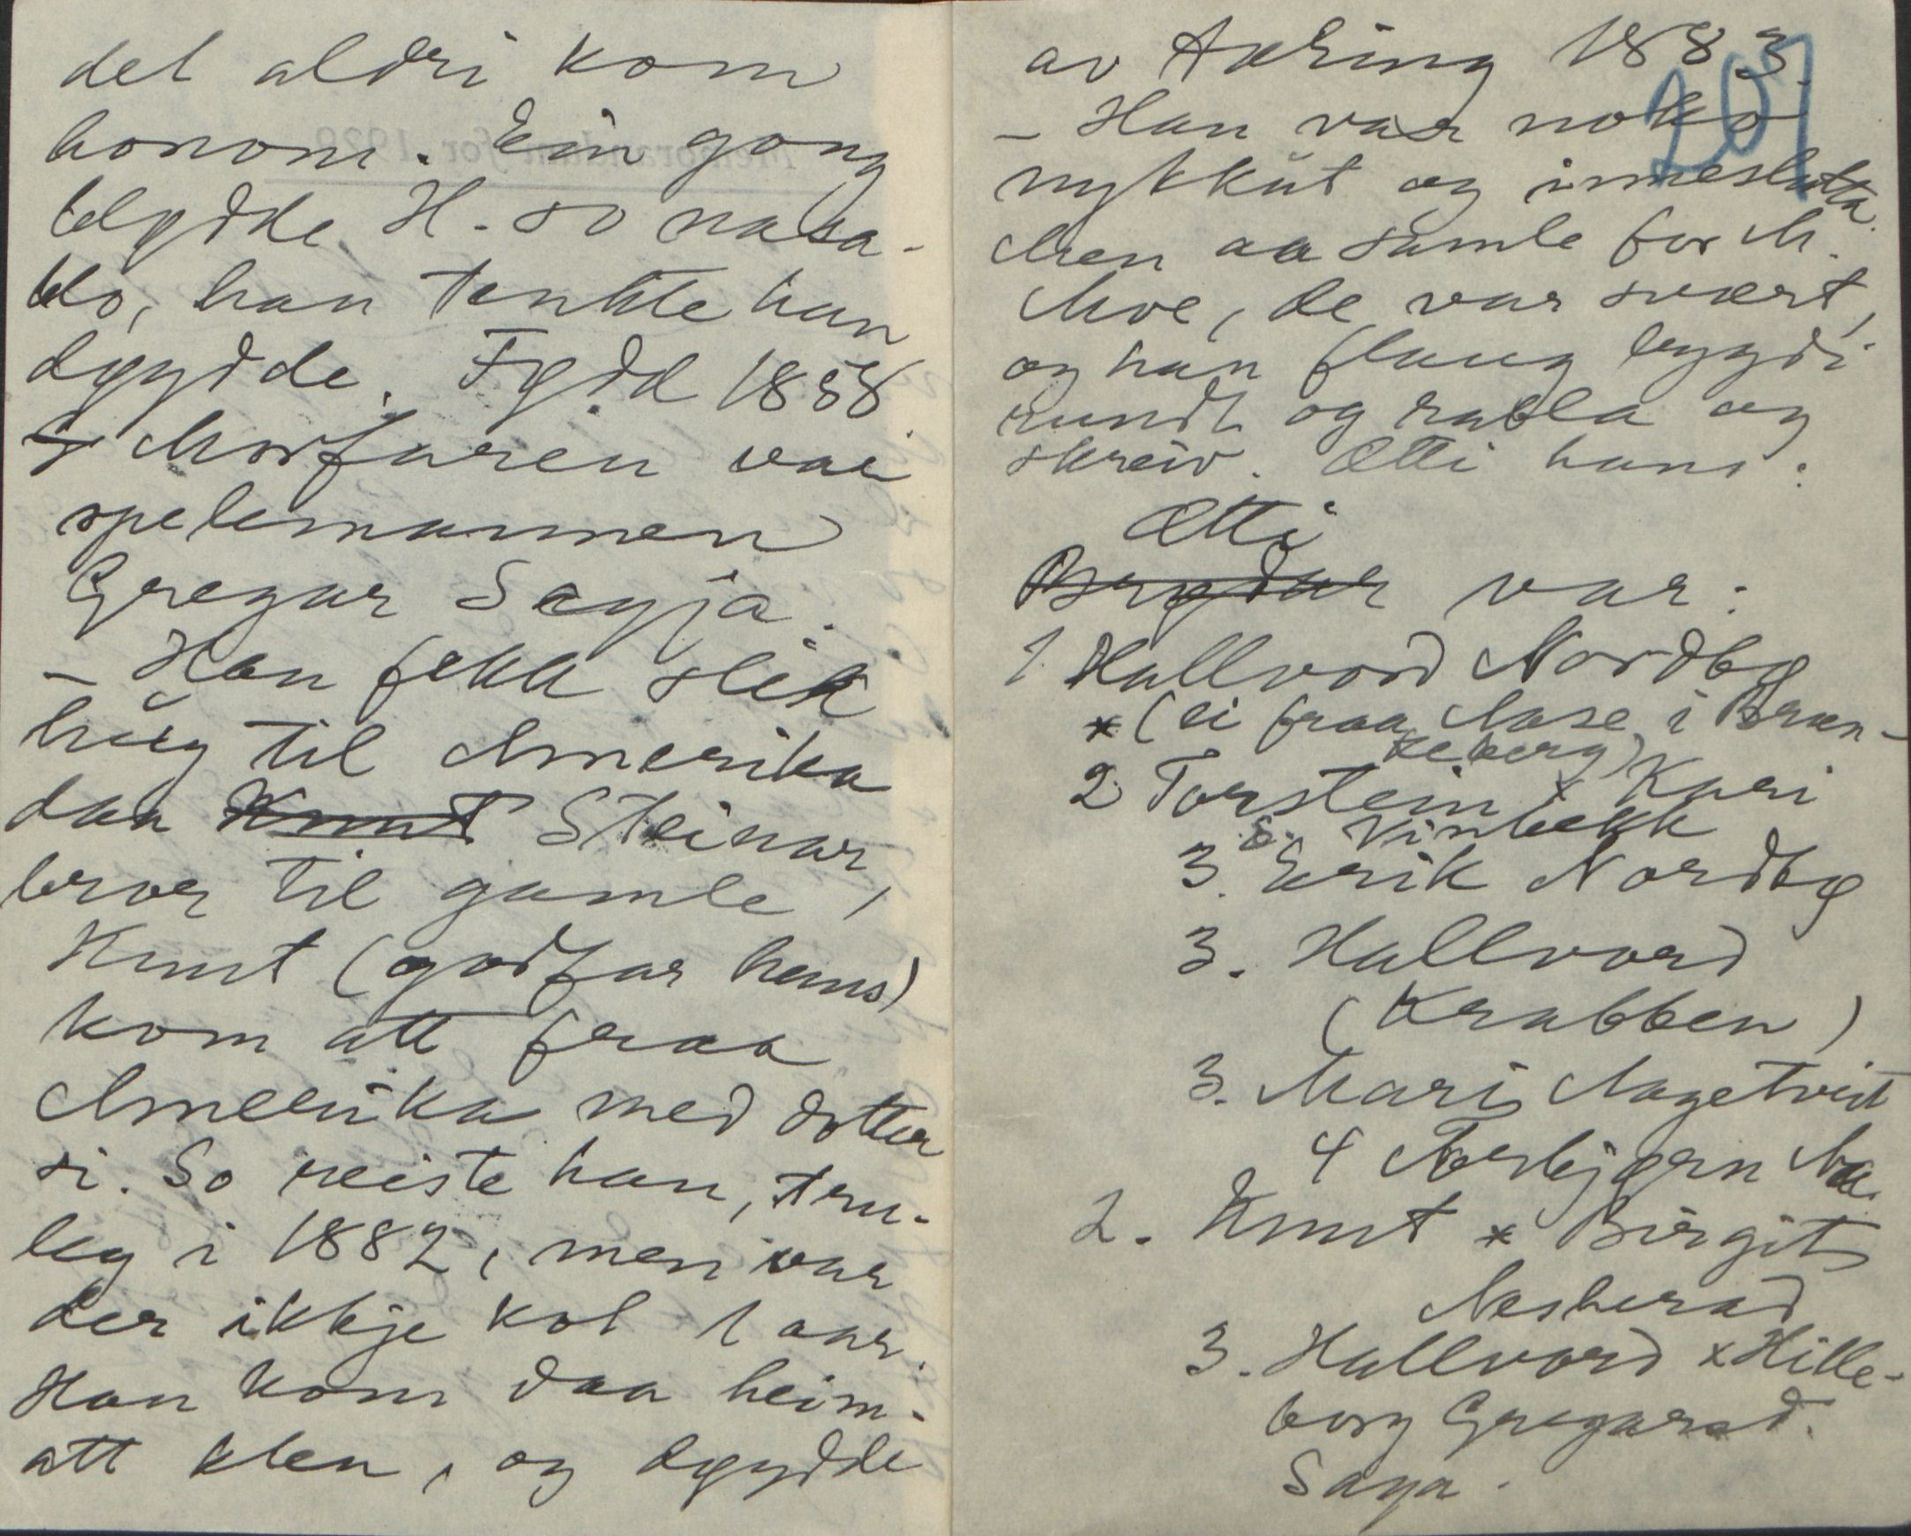 det aldri kom
honom. Ein gong
blødde H. so nasa-
blo, han tenkte han
døydde. Fødd 1858
Morfaren var
spelemannen
Gregar Søyja.
- Han fekk slik
hug til Amerika
daa Knut Steinar,
bror til gamle
Knut (godfar hans)
kom att fraa
Amerika med dotter
si. So reiste han, tru-
leg i 1882, men var
der ikkje kol 1 aar.
Han kom daa heim-
att klen, og døydde
av tæring 1883.
207
- Han var noko
nykkut og inneslutta.
Men aa samle for M.
Moe, de var svært,
og han flaug bygdi
rundt og rabla og
skreiv. Ætti hans:
Ætti
var:
1 Hallvord Nordbø
* (ei fraa Aase i Brun-
keberg)
2 Torstein x Kari
Vinbekk
3. Eirik Nordbø
3. Hallvord
(Krabben)
3. Mari Aagetveit
4 Torbjørn Aa.
2. Knut * Birgit
Nesherad
3. Hallvord x Hille-
borg Gregarsd.
Søya.